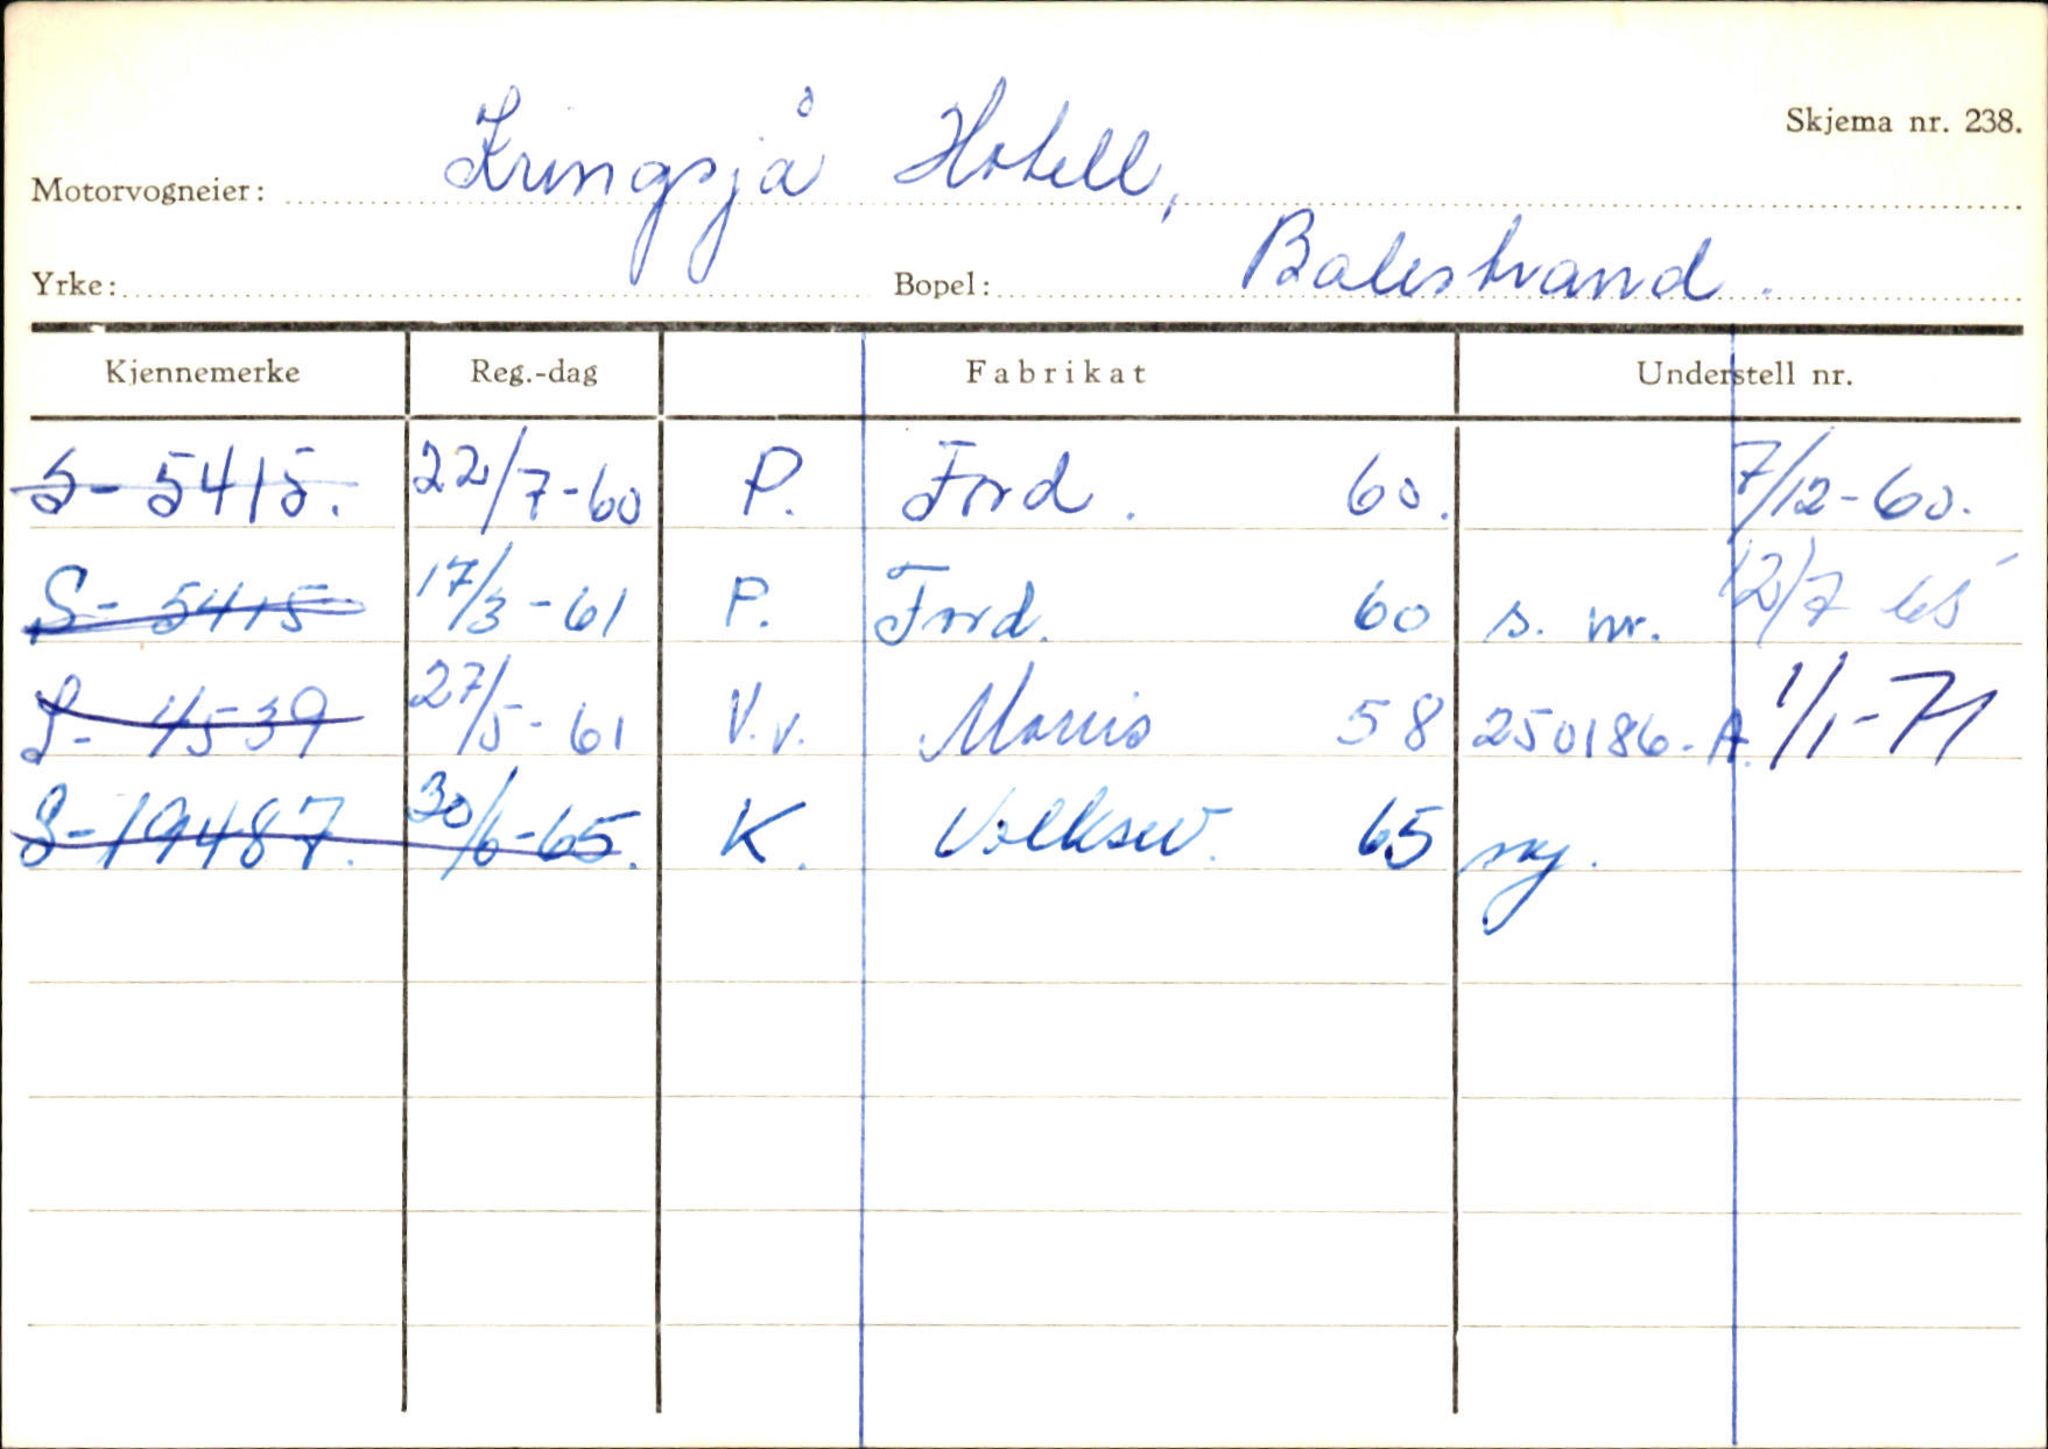 Skjema nr. 238.
Motorvogneier: Kringsjå Hotell,
Yrke: Bopel: Balestrand.
Kjennemerke Reg.-dag Fabrikat Understell nr.
S- 5415. 22/7-60 P. Ford. 60. 7/12-60.
S- 5415 17/3-61 P. Ford. 60 s. nr. 12/7 65
S- 4539 27/5-61 V.v. Morris 58 250186-A. 1/1-71
S-19487. 30/6-65. K. Volksw. 65 ny.